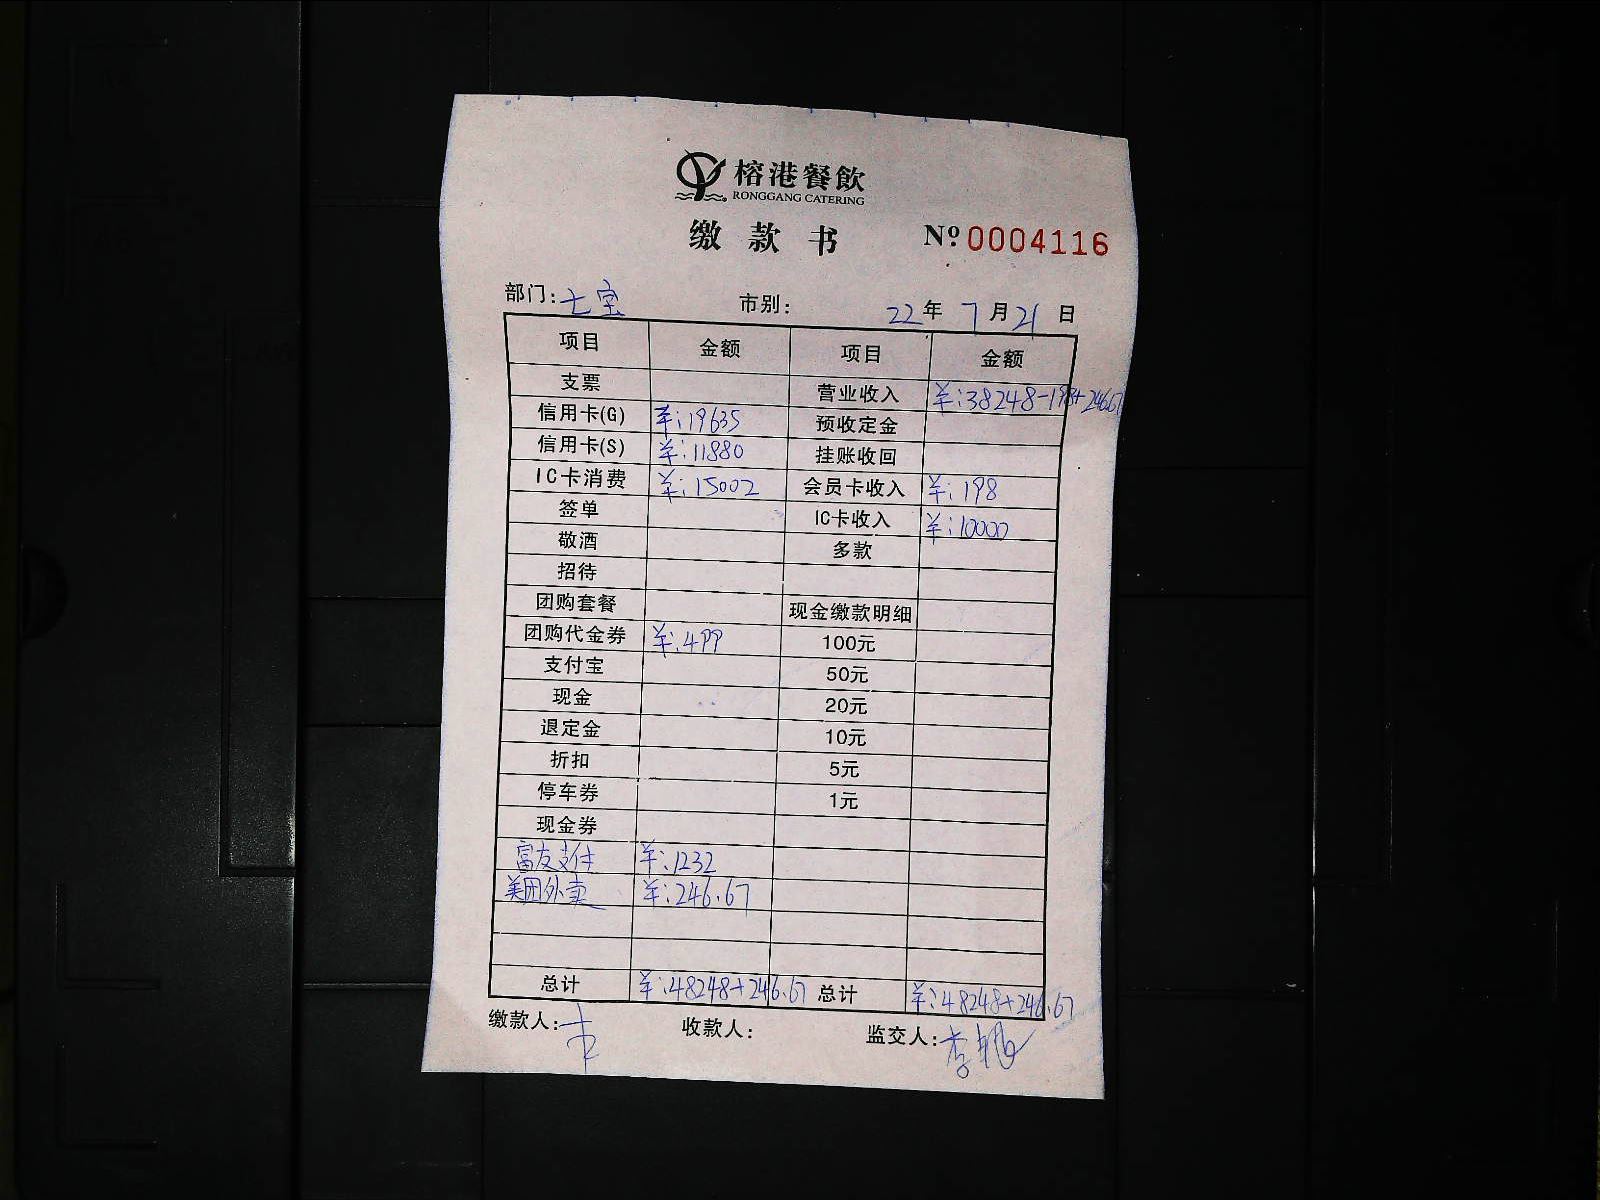 榕港餐飲
RONGGANG CATERING
缴款书 Nº 0004116
部门: 七宝 市别: 22年7月21日
项目 金额 项目 金额
支票 营业收入 ¥:38248-198+246.67
信用卡(G) ¥:19635 预收定金
信用卡(S) ¥:11880 挂账收回
IC卡消费 ¥:15002 会员卡收入 ¥:198
签单 IC卡收入 ¥:10000
敬酒 多款
招待
团购套餐 现金缴款明细
团购代金券 ¥:499 100元
支付宝 50元
现金 20元
退定金 10元
折扣 5元
停车券 1元
现金券
富友支付 ¥:1232
美团外卖 ¥:246.67
总计 ¥:48248+246.67 总计 ¥:48248+246.67
缴款人: 收款人: 监交人: